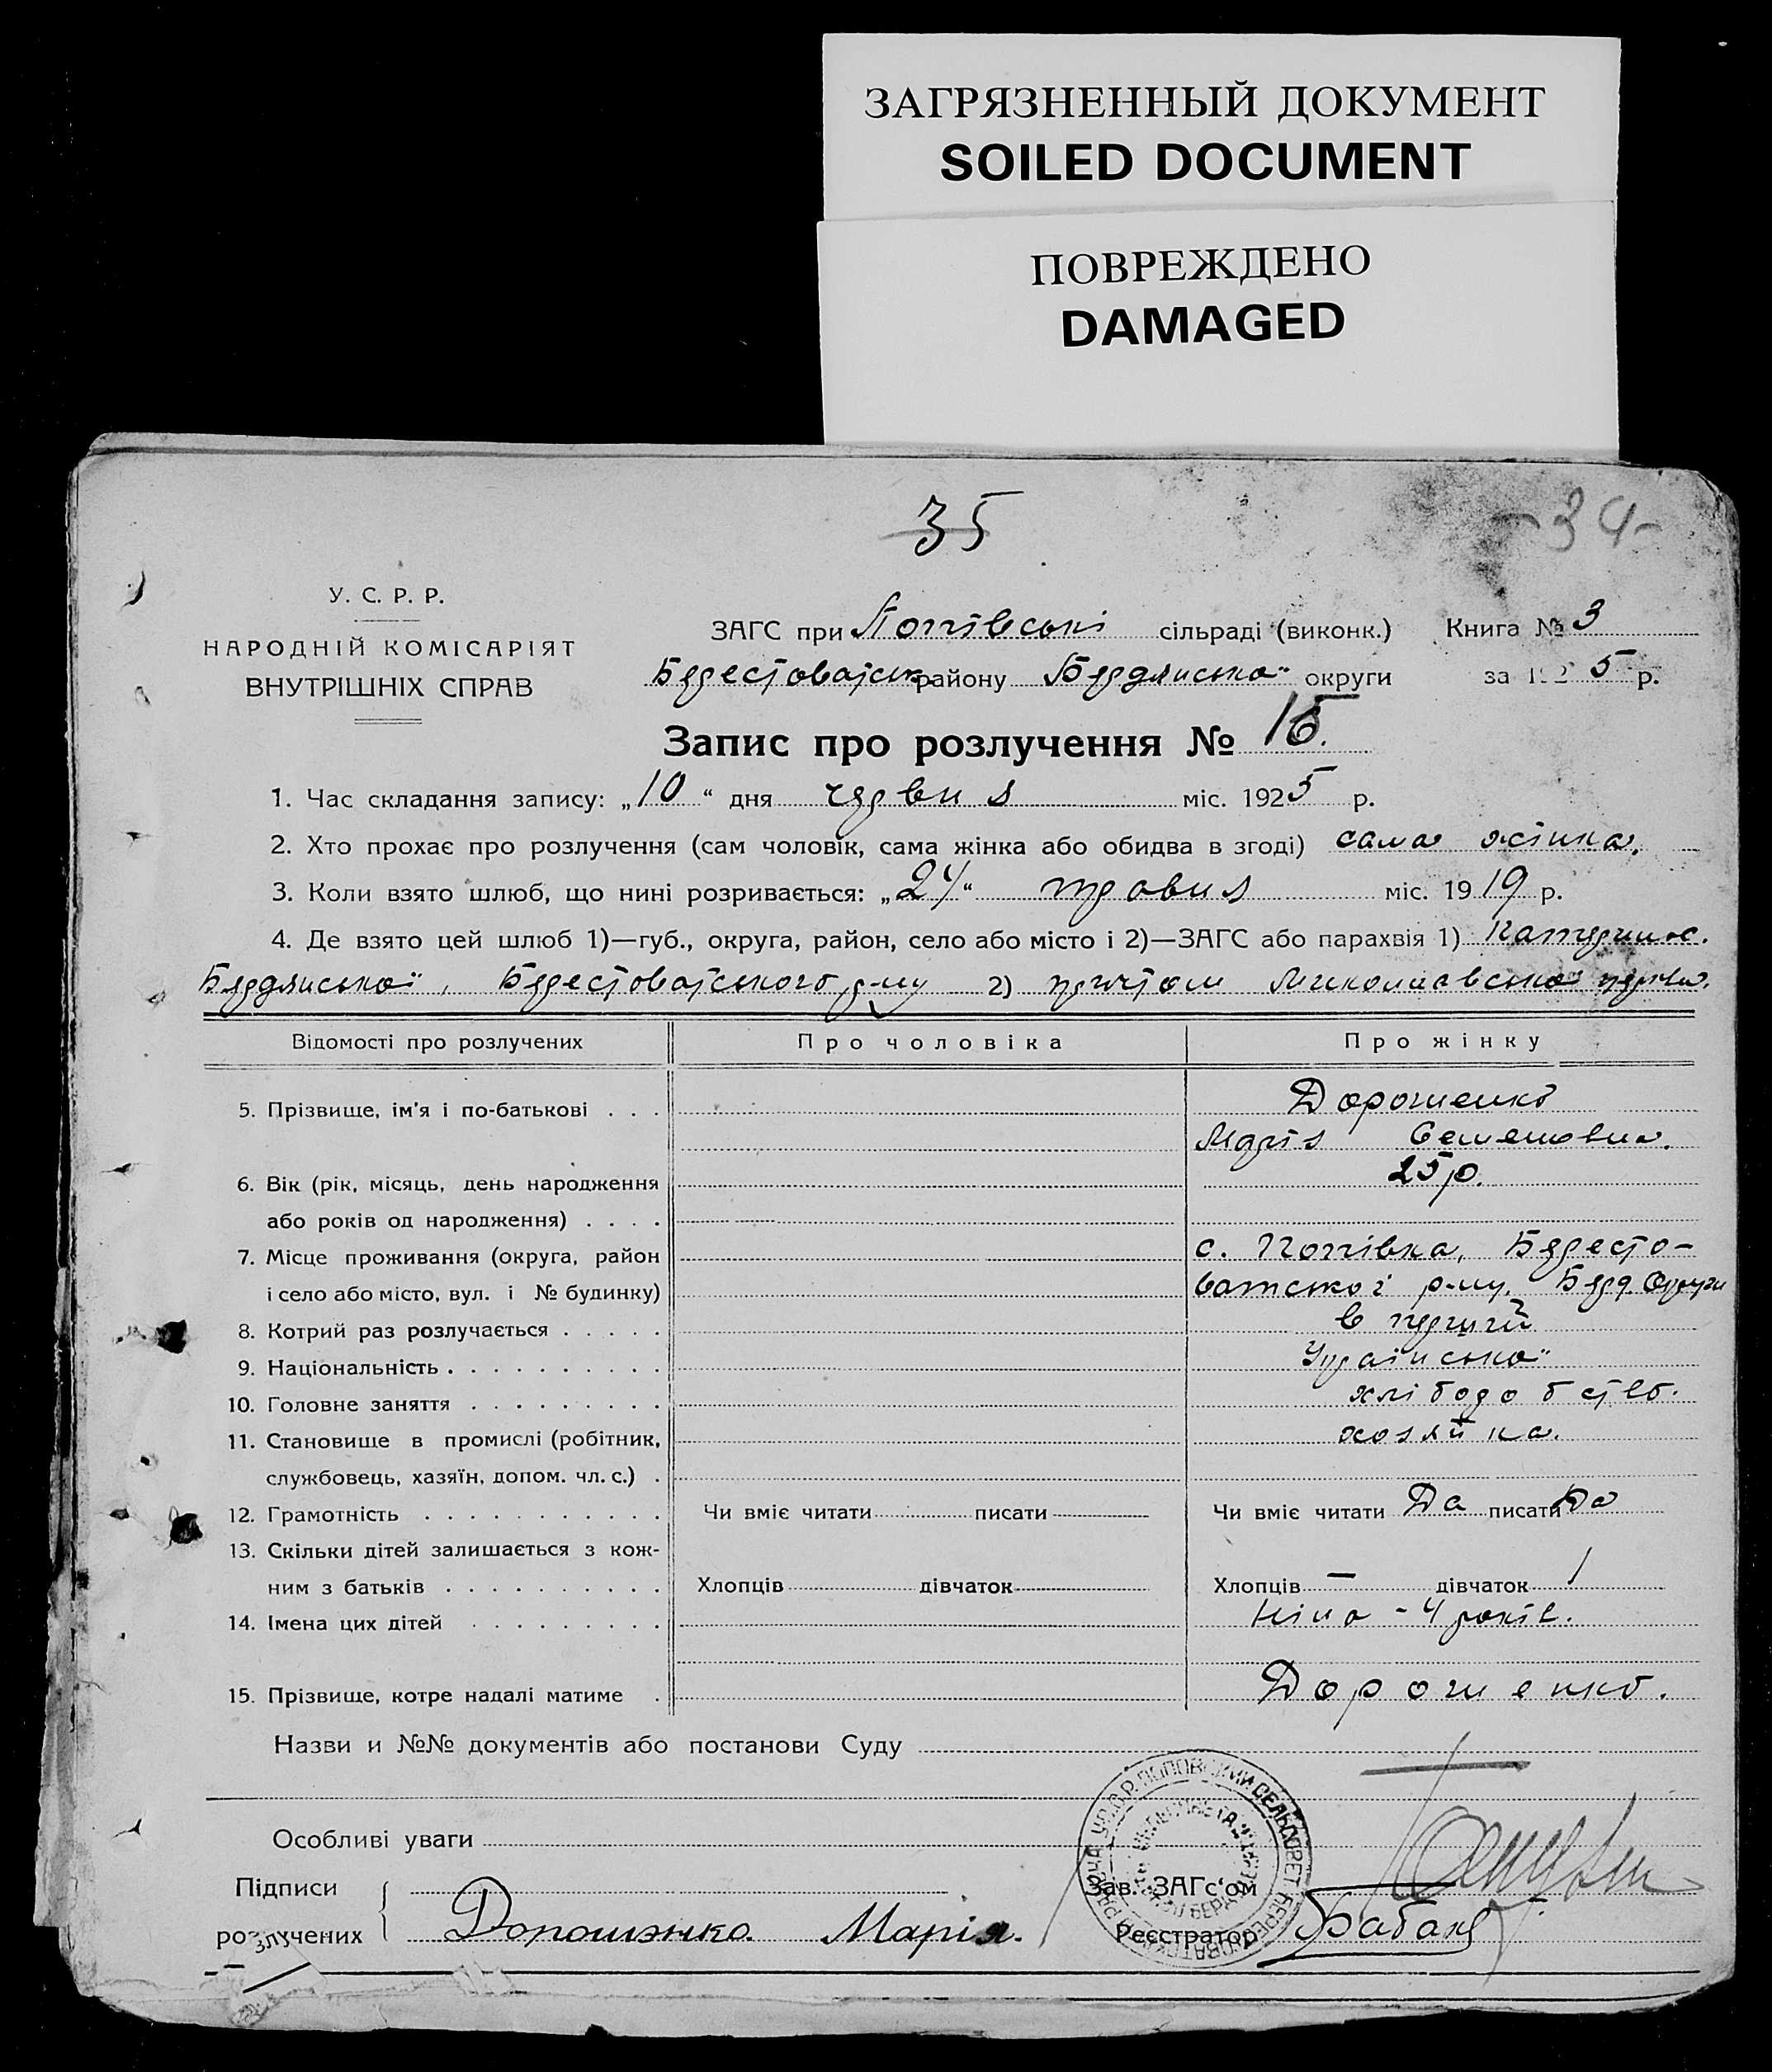 ЗАГРЯЗНЕННЫЙ ДОКУМЕНТ
SOILED DOCUMENT
ПОВРЕЖДЕНО
DAMAGED
35
-34-
У. С. Р. Р.
НАРОДНІЙ КОМІСАРІЯТ
ВНУТРІШНІХ СПРАВ
ЗАГС при Попівські сільраді (виконк.) Книга № 3
Берестоватськ. району Бердянської округи за 1925 р.
Запис про розлучення № 16.
1. Час складання запису: „10“ дня червня міс. 1925 р.
2. Хто прохає про розлучення (сам чоловік, сама жінка або обидва в згоді) сама жінка.
3. Коли взято шлюб, що нині розривається: „24“ травня міс. 1919 р.
4. Де взято цей шлюб 1)—губ., округа, район, село або місто і 2)—ЗАГС або парахвія 1)
Бердянської, Берестоватського р-ну 2) причтом Миколаївської церкви.
Відомості про розлучених Про чоловіка Про жінку
5. Прізвище, ім'я і по-батькові . . . Дорошенко
Марія Семеновна.
6. Вік (рік, місяць, день народження 25 р.
або років од народження) . . . .
7. Місце проживання (округа, район с. Попівка, Бересто-
і село або місто, вул. і № будинку) ватської р-ну. Берд. Округи
8. Котрий раз розлучається . . . . . в перший
9. Національність . . . . . . . . . . Українська
10. Головне заняття . . . . . . . . . хліборобство.
11. Становище в промислі (робітник, хозяйка.
службовець, хазяїн, допом. чл. с.) .
12. Грамотність . . . . . . . . . . . Чи вміє читати писати Чи вміє читати Да писати Да
13. Скільки дітей залишається з кож-
ним з батьків . . . . . . . . . . Хлопців дівчаток Хлопців — дівчаток 1
14. Імена цих дітей . . . . . . . . . Ніна - 4 років.
15. Прізвище, котре надалі матиме . Дорошенко.
Назви и №№ документів або постанови Суду
Особливі уваги
Підписи Зав. ЗАГс'ом
розлучених Дорошэнко Марія. Реєстратор